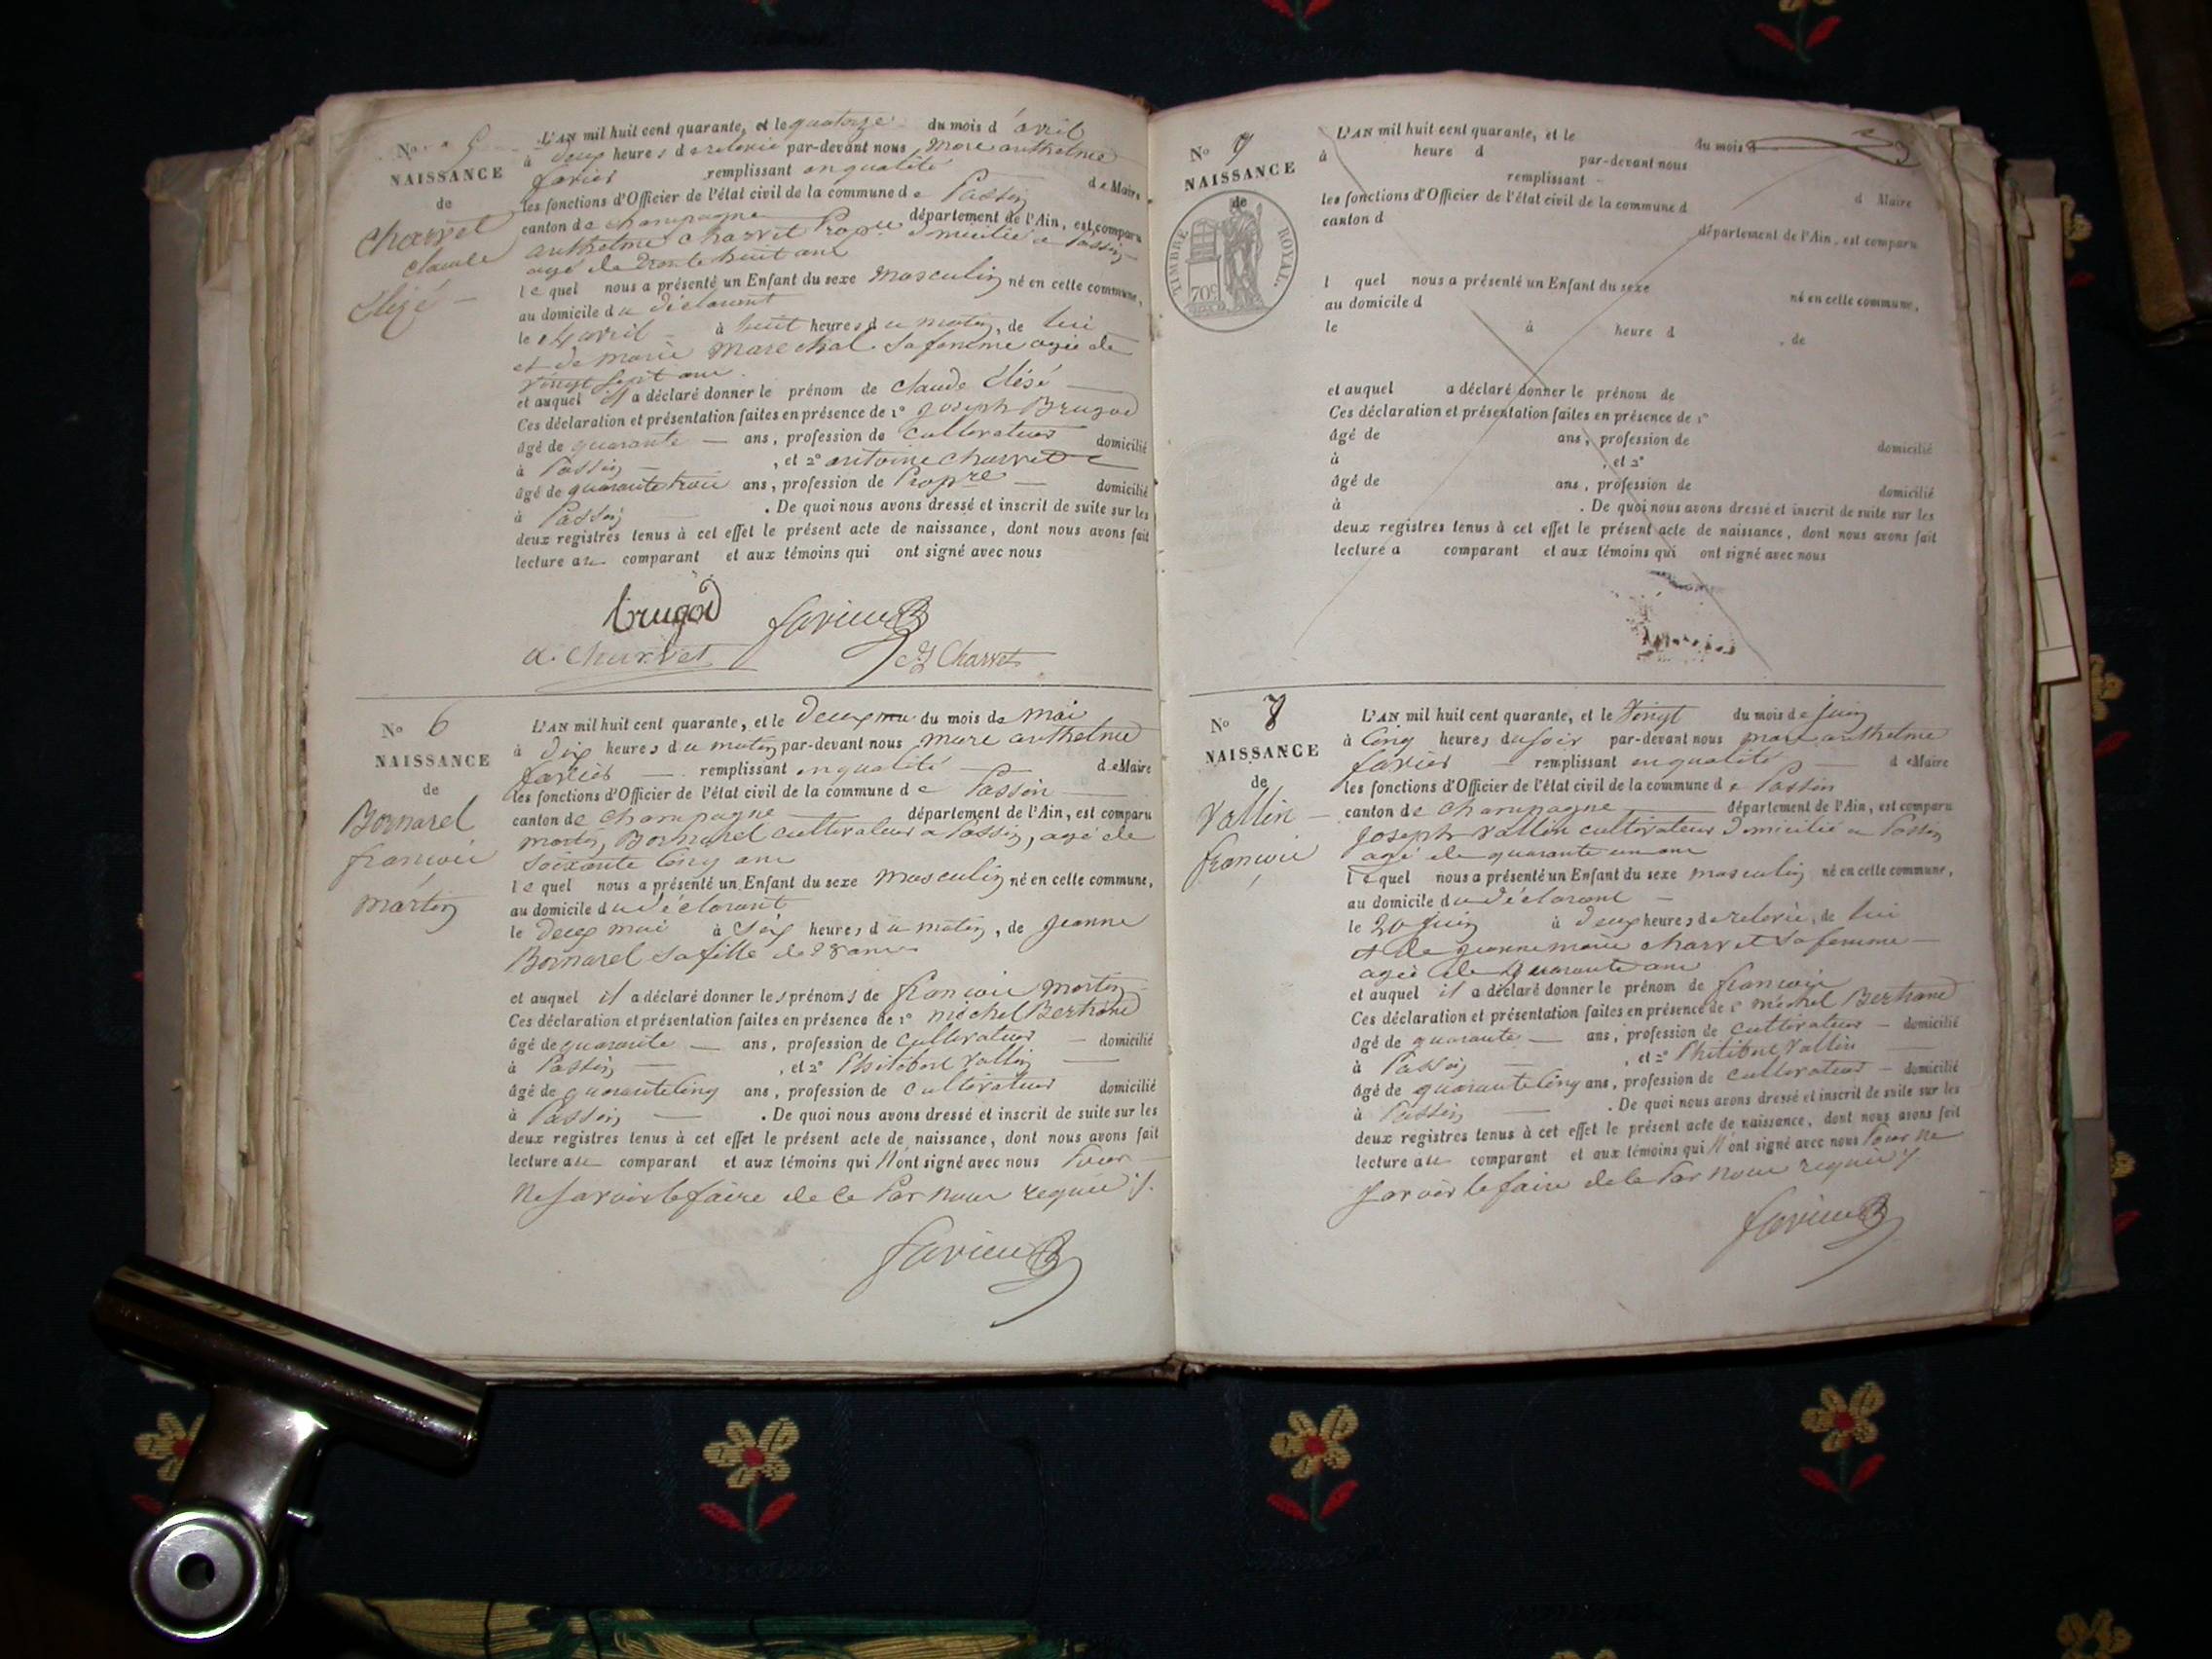 No 5
NAISSANCE
de
Charvet
Claude
Elisé
L'AN mil huit cent quarante, et le quatorze du mois d'avril
à deux heures de relevée par-devant nous Marc anthelme
favier remplissant en qualité de Maire
les fonctions d'Officier de l'état civil de la commune de Passin
canton de champagne département de l'Ain, est comparu
anthelme charvet Propre domicilié a Passin
agé de trente huit ans
lequel nous a présenté un Enfant du sexe masculin né en cette commune,
au domicile du déclarant
le 14 avril à huit heures du matin, de lui
et de marie marechal sa femme agée de
vingt sept ans
et auquel il a déclaré donner le prénom de claude Elisé
Ces déclaration et présentation faites en présence de 1° joseph Brugod
âgé de quarante ans, profession de cultivateur domicilié
à Passin, et 2° antoine charvet
âgé de quarante trois ans, profession de Propre domicilié
à Passin. De quoi nous avons dressé et inscrit de suite sur les
deux registres tenus à cet effet le présent acte de naissance, dont nous avons fait
lecture au comparant et aux témoins qui ont signé avec nous
brugod favier
a. Charvet Charvet
No 6
NAISSANCE
de
Bornarel
françois
martin
L'AN mil huit cent quarante, et le deux du mois de mai
à dix heures du matin par-devant nous marc anthelme
favier remplissant en qualité de Maire
les fonctions d'Officier de l'état civil de la commune de Passin
canton de champagne département de l'Ain, est comparu
martin Bornarel cultivateur a Passin, agé de
soixante cinq ans
lequel nous a présenté un Enfant du sexe masculin né en cette commune,
au domicile du déclarant
le deux mai à six heures du matin, de jeanne
Bornarel sa fille de 28 ans
et auquel il a déclaré donner les prénoms de françois martin
Ces déclaration et présentation faites en présence de 1° michel Bertrand
âgé de quarante ans, profession de cultivateur domicilié
à Passin, et 2° Philibert Vallin
âgé de quarante cinq ans, profession de cultivateur domicilié
à Passin. De quoi nous avons dressé et inscrit de suite sur les
deux registres tenus à cet effet le présent acte de naissance, dont nous avons fait
lecture au comparant et aux témoins qui n'ont signé avec nous Pour
ne savoir le faire de ce Par nous requis
favier
No 7
NAISSANCE
de
TIMBRE ROYAL.
70c
L'AN mil huit cent quarante, et le du mois d
à heure d par-devant nous
remplissant d Maire
les fonctions d'Officier de l'état civil de la commune d
canton d département de l'Ain, est comparu
l quel nous a présenté un Enfant du sexe né en cette commune,
au domicile d
le à heure d , de
et auquel a déclaré donner le prénom de
Ces déclaration et présentation faites en présence de 1°
âgé de ans, profession de domicilié
à , et 2°
âgé de ans, profession de domicilié
à . De quoi nous avons dressé et inscrit de suite sur les
deux registres tenus à cet effet le présent acte de naissance, dont nous avons fait
lecture a comparant et aux témoins qui ont signé avec nous
No 7
NAISSANCE
de
Vallin
françois
L'AN mil huit cent quarante, et le vingt du mois de juin
à cinq heures du soir par-devant nous marc anthelme
favier remplissant en qualité de Maire
les fonctions d'Officier de l'état civil de la commune de Passin
canton de champagne département de l'Ain, est comparu
joseph vallin cultivateur domicilié a Passin
agé de quarante un ans
lequel nous a présenté un Enfant du sexe masculin né en cette commune,
au domicile du déclarant
le 20 juin à deux heures de relevée, de lui
et de jeanne marie charvet sa femme
agée de quarante ans
et auquel il a déclaré donner le prénom de françois
Ces déclaration et présentation faites en présence de 1° michel Bertrand
âgé de quarante ans, profession de cultivateur domicilié
à Passin, et 2° Philibert Vallin
âgé de quarante cinq ans, profession de cultivateur domicilié
à Passin. De quoi nous avons dressé et inscrit de suite sur les
deux registres tenus à cet effet le présent acte de naissance, dont nous avons fait
lecture au comparant et aux témoins qui n'ont signé avec nous Pour ne
savoir le faire de ce Par nous requis
favier